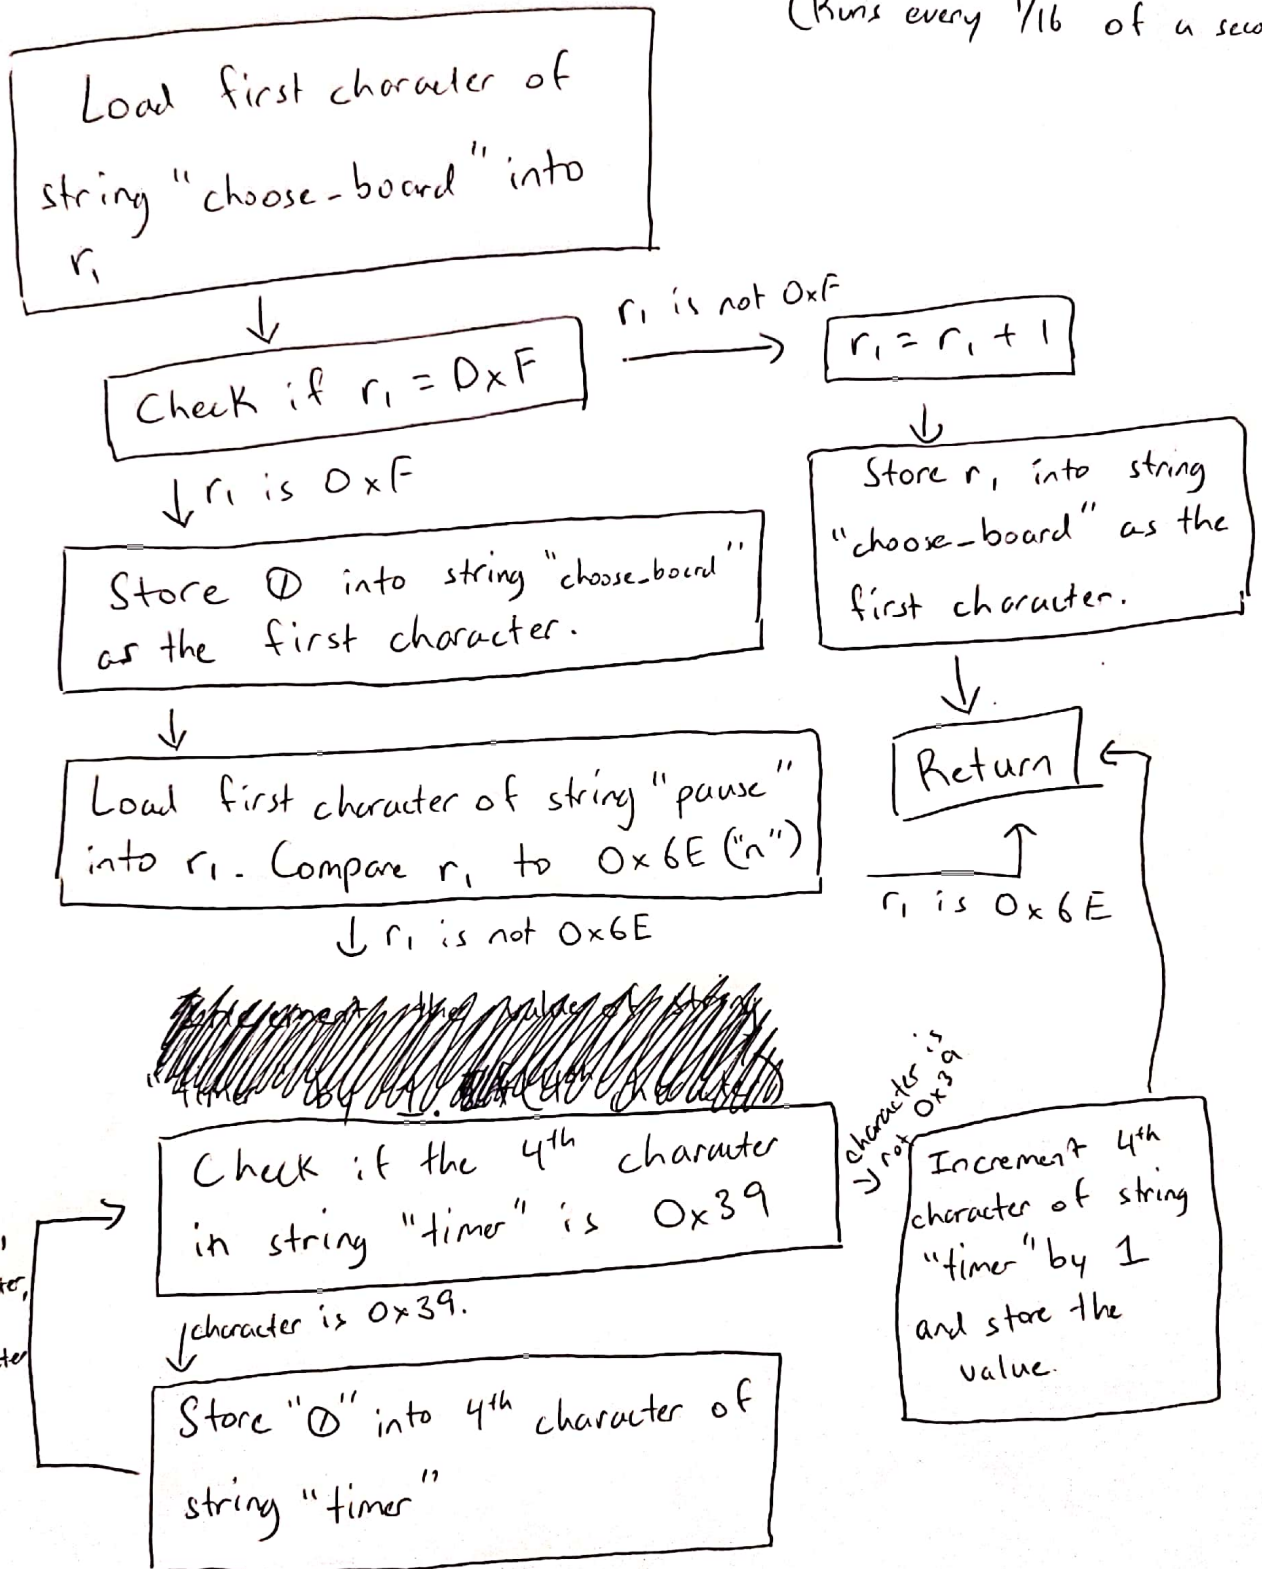 (Runs every 1/16 of a seco
Load first character of
string "choose-board" into
r1
r1 is not 0xF
r1 = r1 + 1
Check if r1 = 0xF
r1 is 0xF
Store r1 into string
"choose-board" as the
first character.
Store 0 into string "choose-board"
as the first character.
Return
Load first character of string "pause"
into r1. Compare r1 to 0x6E ("n")
r1 is 0x6E
r1 is not 0x6E
character is
not 0x39
Check if the 4th character
in string "timer" is 0x39
Increment 4th
character of string
"timer" by 1
and store the
value.
character is 0x39.
Store "0" into 4th character of
string "timer"